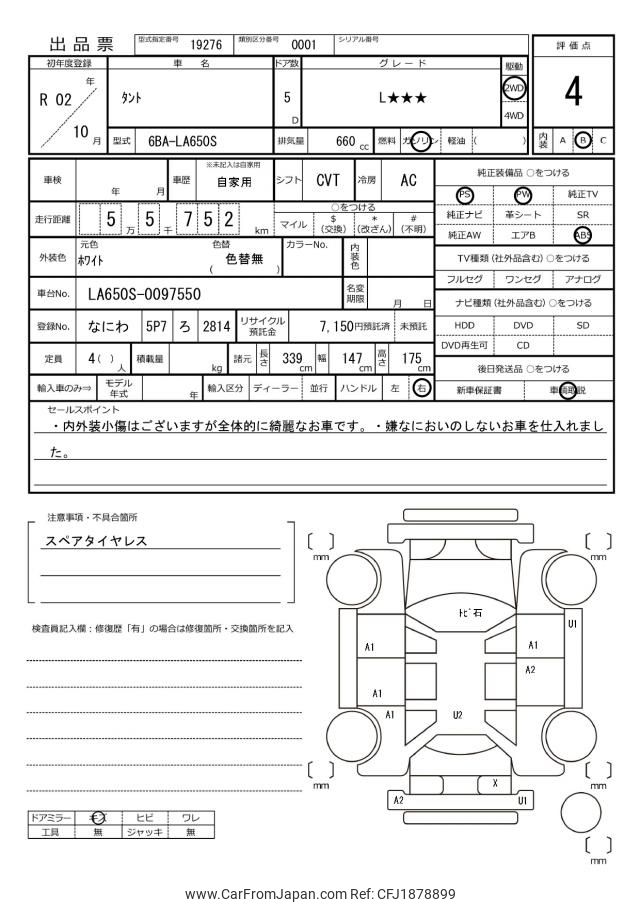 出品票 型式指定番号 19276 類別区分番号 0001 シリアル番号
評価点
4
内装 A B C
初年度登録 車名 ドア数 グレード 駆動
R 02 年 10 月 タント 5 D L★★★ 2WD 4WD
型式 6BA-LA650S 排気量 660 cc 燃料 ガソリン 軽油 ( )
車検 年 月 車歴 ※未記入は自家用 自家用 シフト CVT 冷房 AC
走行距離 5 5 万 千 7 5 2 km ○をつける マイル $ (交換) * (改ざん) # (不明)
外装色 元色 ホワイト 色替 ( 色替無 ) カラーNo. 内装色
車台No. LA650S-0097550 名変期限 月 日
登録No. なにわ 5P7 ろ 2814 リサイクル預託金 7,150円預託済 未預託
定員 4 ( ) 人 積載量 kg 諸元 長さ 339 cm 幅 147 cm 高さ 175 cm
輸入車のみ⇒ モデル年式 年 輸入区分 ディーラー 並行 ハンドル 左 右
純正装備品 ○をつける
PS PW 純正TV
純正ナビ 革シート SR
純正AW エアB ABS
TV種類 (社外品含む) ○をつける
フルセグ ワンセグ アナログ
ナビ種類 (社外品含む) ○をつける
HDD DVD SD
DVD再生可 CD
後日発送品 ○をつける
新車保証書 車輌取説
セールスポイント
・内外装小傷はございますが全体的に綺麗なお車です。・嫌なにおいのしないお車を仕入れまし
た。
注意事項・不具合箇所
スペアタイヤレス
検査員記入欄：修復歴「有」の場合は修復箇所・交換箇所を記入
mm mm
トビ石
U1
A1 A1
A2
A1
A1 U2
mm mm
X
A2 U1
mm
ドアミラー キズ ヒビ ワレ
工具 無 ジャッキ 無
www.CarFromJapan.com Ref: CFJ1878899